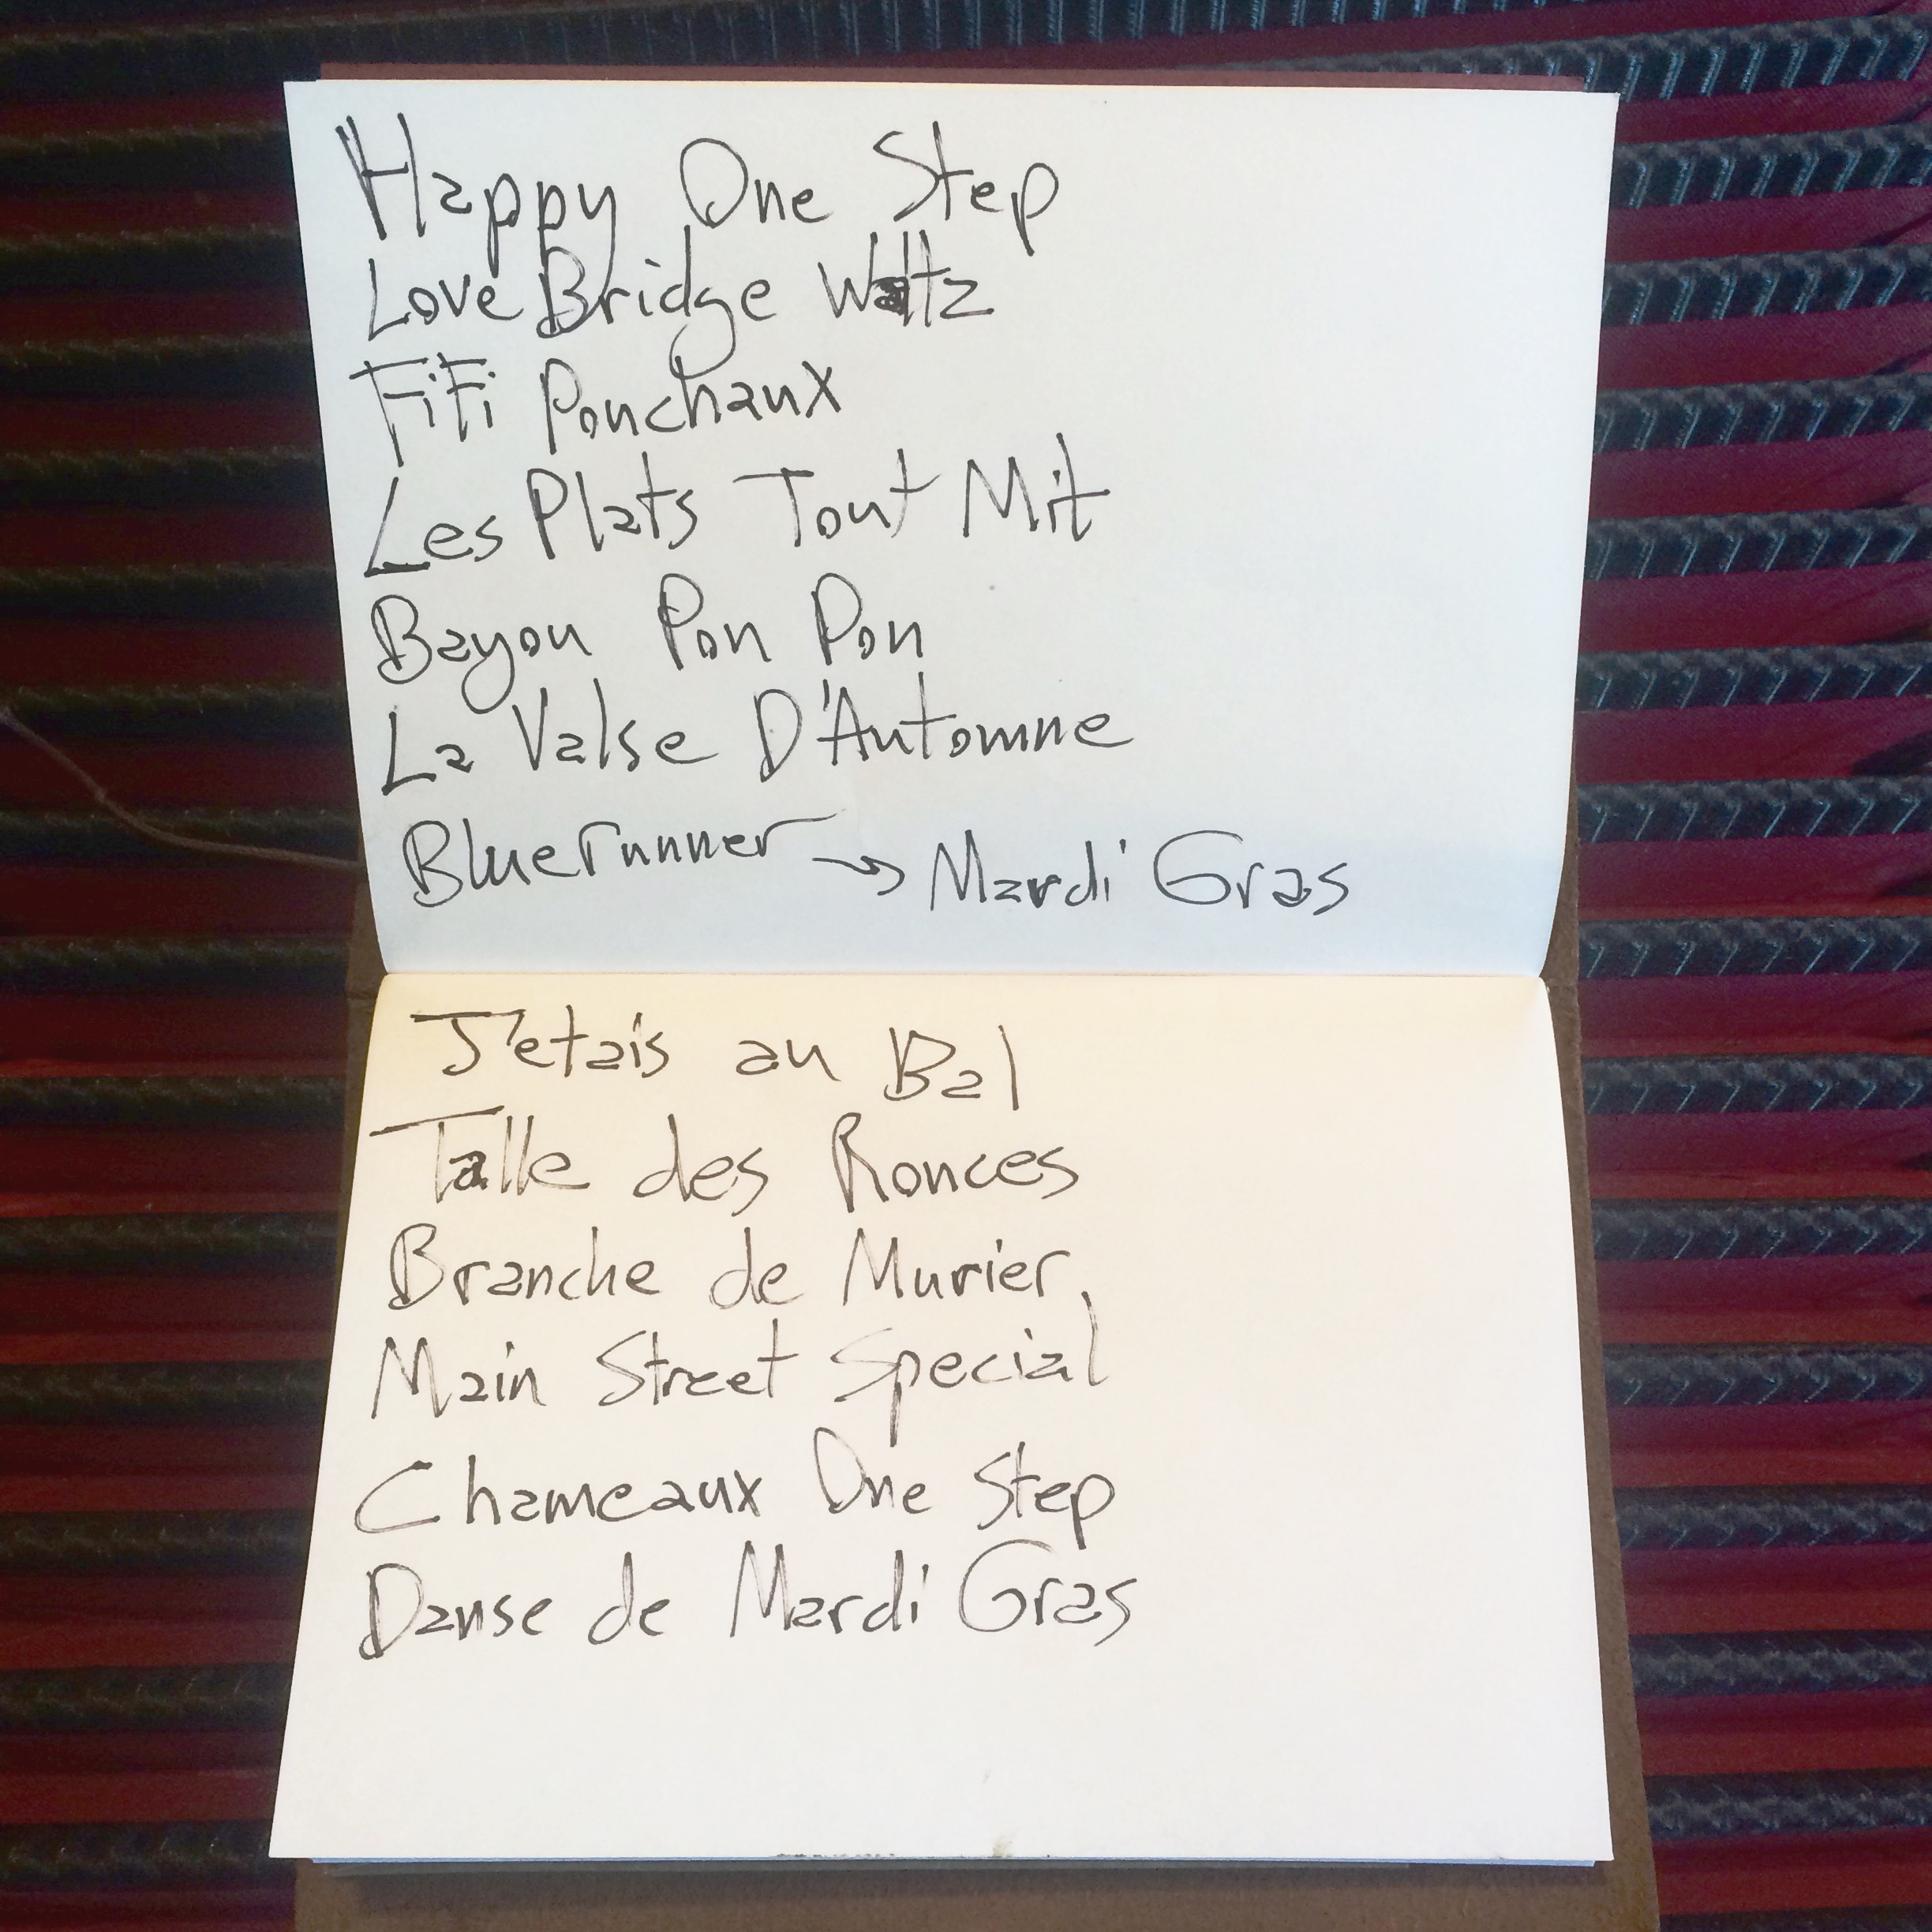 Happy One Step
Love Bridge Waltz
FiFi Ponchaux
Les Plats Tout Mit
Bayou Pon Pon
La Valse D'Automne
Bluerunner → Mardi Gras
J'etais au Bal
Talle des Ronces
Branche de Murier
Main Street Special
Chameaux One Step
Danse de Mardi Gras